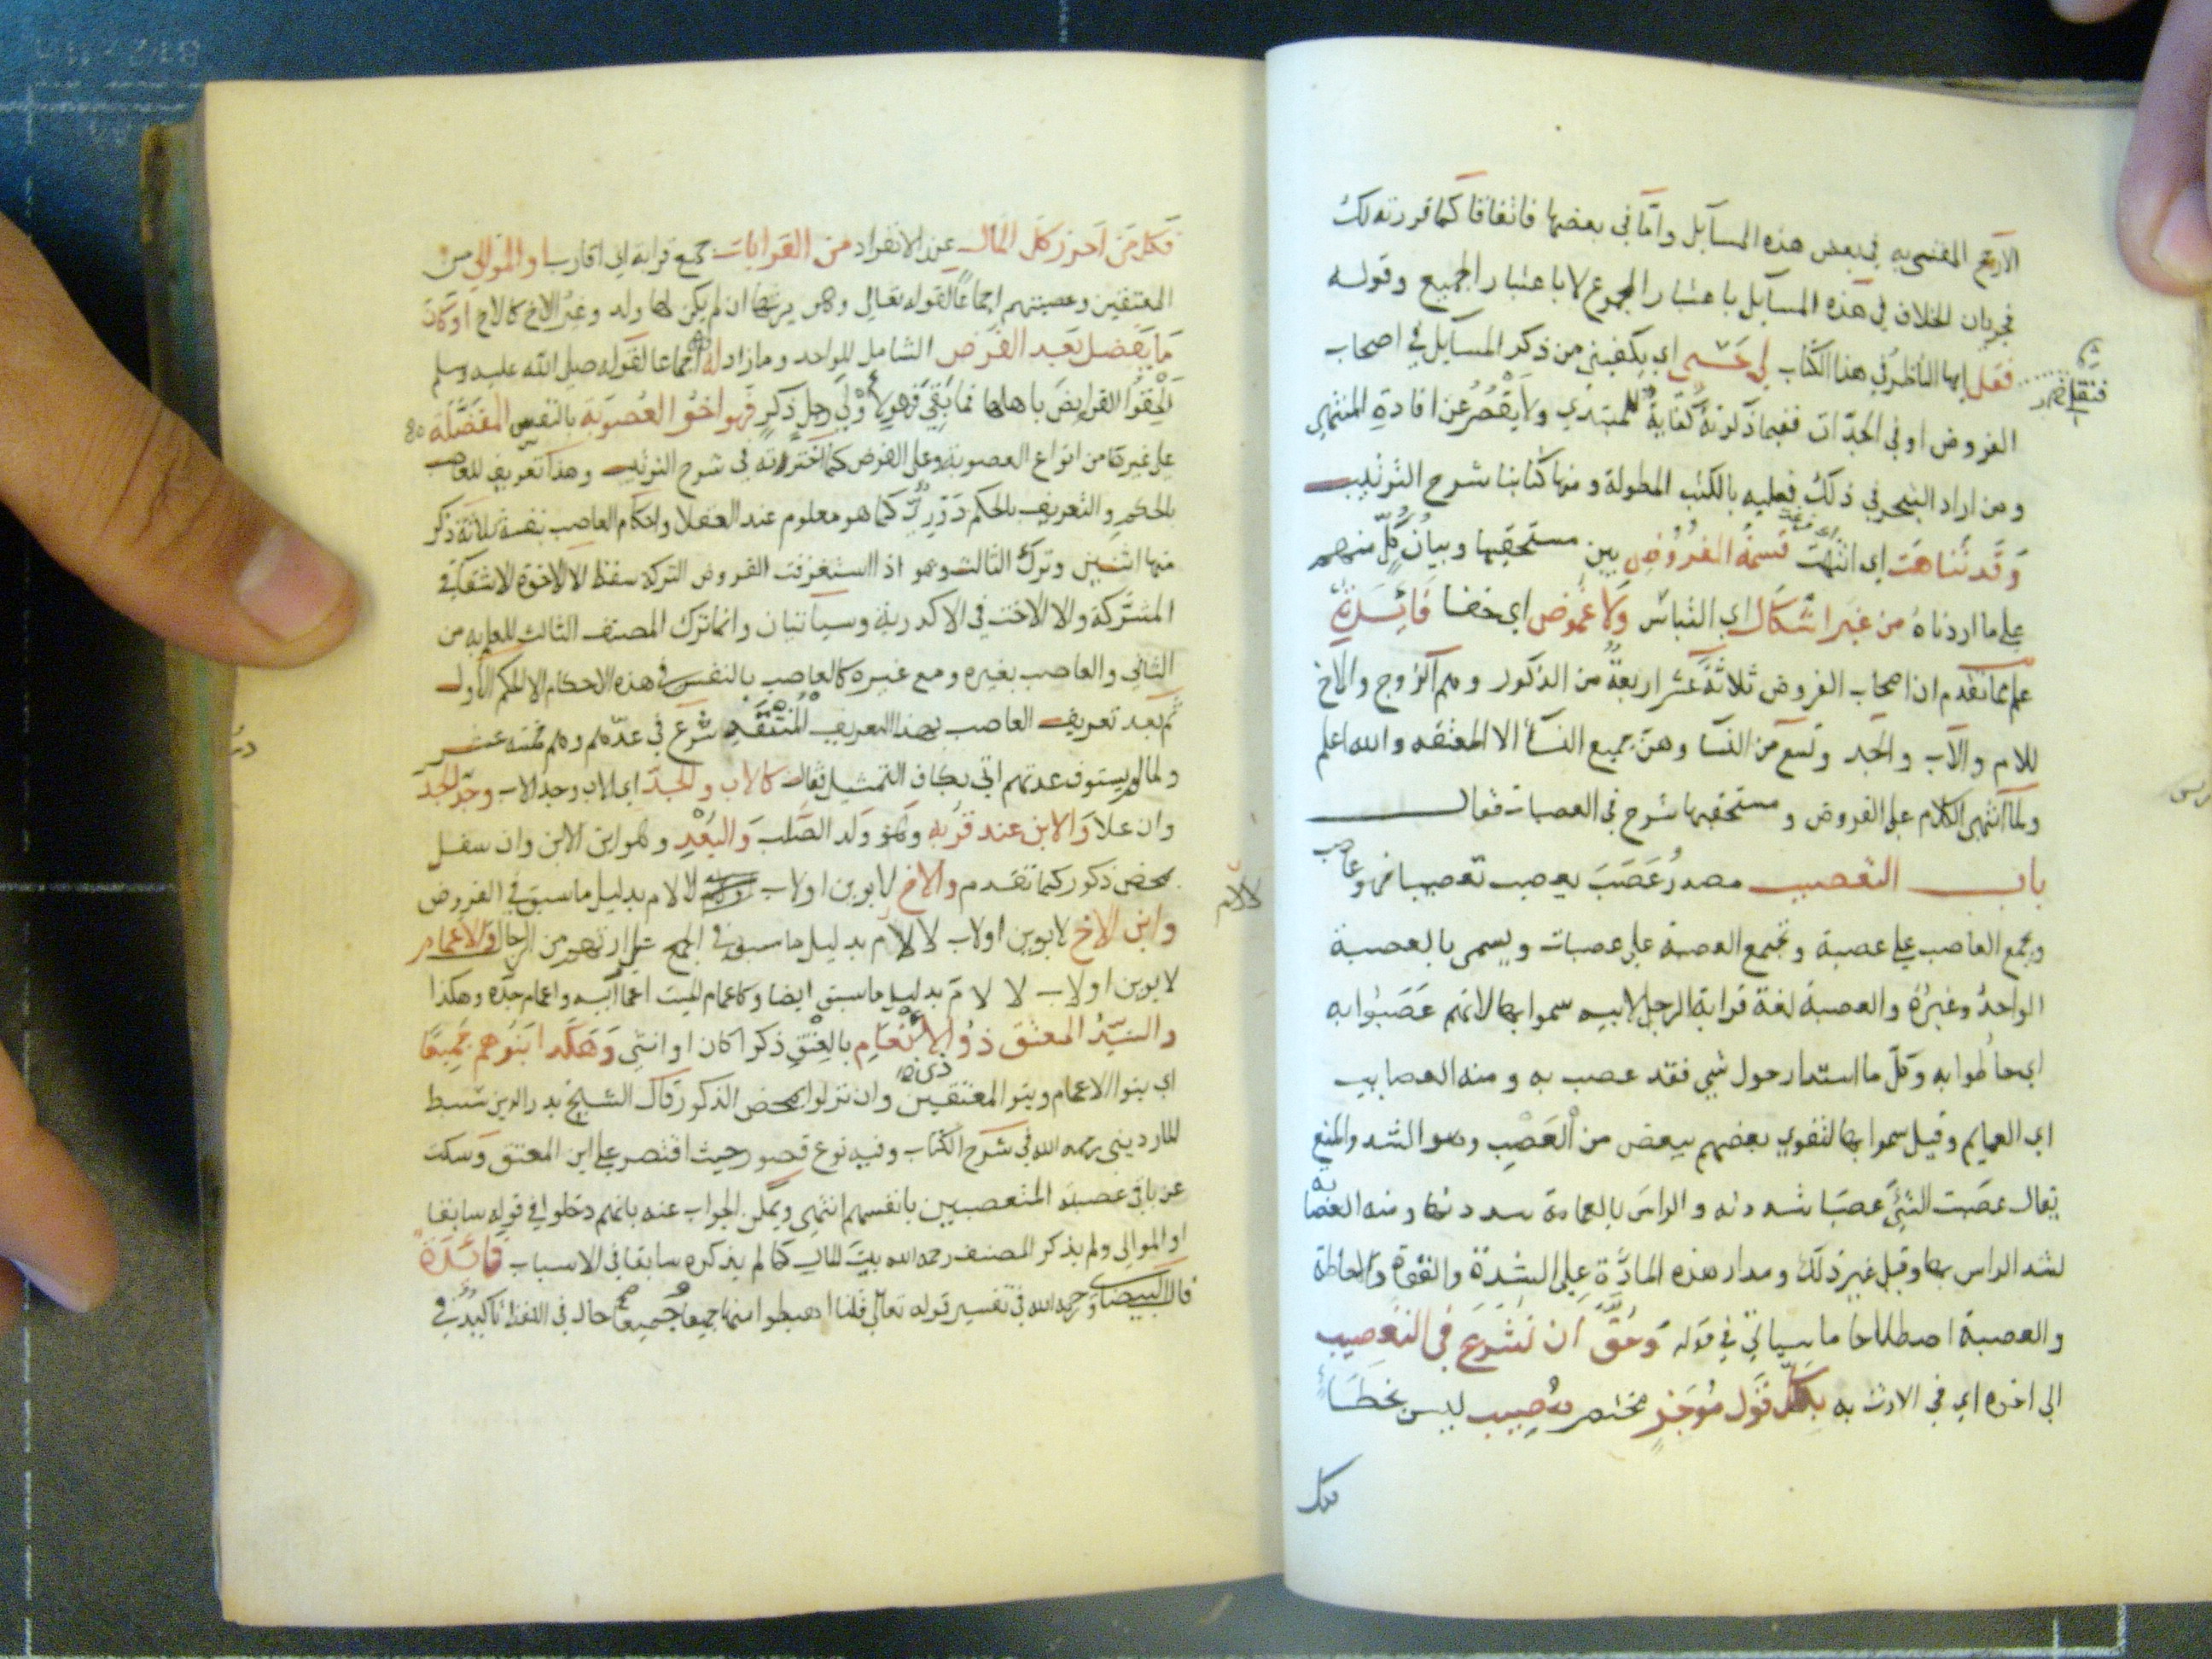 الارجح المفتى به في بعض هذه المسآيل وامّا في بعضها فاتفاقا كما قررته لك
فجريان الخلاف في هذه المسآيل باعتبار المجموع لا باعتبار الجميع وقوله
فقل ايها الناظر في هذا الكتاب لي حسبي اي يكفيني من ذكر المسآيل في اصحاب
الفروض او في الجدّات ففيما ذكرته كفاية للمبتدي ولا يقصُر عن افادة المنتهي
ومن اراد التبحر في ذلك فعليه بالكتب المطولة ومنها كتابنا شرح الترتيب
وَقَد تناهَت اي انتهت قسمةُ الفُرُوضِ بين مستحقيها وبيان كلٍّ منهم
على ما اردناهُ من غَير اشكال اي التباس وَلا غُموض اي خفا فَائِدة
علم مما تقدم ان اصحاب الفروض ثلاثة عَشر اربعة من الذكور وهم الزوج والاخ
للام والاب والجد وتسع من النسا وهنّ جميع النسآ الا المعتقه والله اعلم
ولمّا انتهى الكلام على الفروض ومستحقيها شرع في العصبات فقال
باب التعصيب مصدرُ عَصَبَ يعصب تعصيبا فهو عاصب
ويجمع العاصب على عصبة وتجمع العصبة على عصبات ويسمى بالعصبة
الواحدُ وغيرُه والعصبة لغة قرابة الرجل لابيه سموا بها لانهم عَصَبُوا به
اي حاطُوا به وكلّ ما استدار حول شي فقد عصب به ومنه العصايب
اي العمايم وقيل سموا بها لتقوي بعضهم ببعض من العَصْبِ وهو الشد والمنع
يقال عصَبت الشئَ عَصبًا شددته والراسَ بالعمامة شددتها ومنه العصابة
لشد الراس بها وقيل غير ذلك ومدار هذه المادّة على الشدة والقوة والاحاطة
والعصبة اصطلاحا ما سياتي في قوله وَحُقَّ ان نَشْرَعَ في التعصِيب
الى اخره اي في الارث به بِكلّ قَول مُوجَزٍ مختصر مُصِيب ليس بخطَاءٍ
فكل
فكل مَن احرز كل المَال عند الانفراد من القَرابات جمع قرابة اي اقارب او المَوالي من
المعتقين وعصبتهم اجماعًا لقوله تعالى وهو يرثها ان لم يكن لها ولد وغيرُ الاخ كالاخ او كان
مَا يَفضل بَعد الفَرض الشامل للواحد وما زاد لَه اجماعا لقوله صلى الله عليه وسلم
اَلحِقُوا الفرايضَ باهلها فما بَقِيَ فهو لأوْلَي رجلٍ ذكرٍ فهو اخو العُصوبَة بالنفس المفضَّلة
على غيرها من انواع العصوبة وعلى الفرض كما اخترته في شرح الترتيب وهذا تعريف للعاصب
بالحكمِ والتعريف بالحكم دَوْرِيٌّ كما هو معلوم عند العقلا واحكام العاصب بنفسه ثلاثة ذكر
منها اثنين وترك الثالث وهو اذا استغرقت الفروض التركة سقط الا الاخوة الاشقآ في
المشتركة والا الاخت في الاكدرية وسياتيان وانما ترك المصنف الثالث للعلم به من
الثاني والعاصب بغيره ومع غيره كالعاصب بالنفس في هذه الاحكام الا الحكم الاول
ثم بعد تعريف العاصب بهذا التعريف المُنتَقَدِ شرع في عدّهم وهم خمسة عشر
ولما لم يستوف عدتهم اتي بكاف التمثيل فقال كالاب والجدّ اي للاب وجد الاب وجَدّ الجدّ
وان عَلا وَالابن عند قُربه وهو وَلد الصُّلب وَالبُعْدِ وهو ابن الابن وان سفل
بمحض ذكور كما تقدم والاخ لابوين او لاب لا لام بدليل ما سبق في الفروض
وابن الاخ لابوين او لاب لا لام بدليل ما سبق في الجمع على ارثهم من الرجال والاعمام
لابوين او لاب لا لام بدليل ما سبق ايضا وكاعمام الميت اعمام ابيه واعمام جده وهكذا
والسَّيِّدُ المعتِق ذو الانعام بالعِتْقِ ذكرا كان او انثى وَهَكَذا بَنُوهُم جَميعًا
اي بنوا الاعمام وبنو المعتقين وان نزلوا بمحض الذكور قال الشيخ بدر الدين سبط
المارديني رحمه الله في شرح الكتاب وفيه نوع قصور حيث اقتصر على ابن المعتق وسكت
عن باقي عصبته المتعصبين بانفسهم انتهى ويمكن الجواب عنه بانهم دخلوا في قوله سابقا
او الموالي ولم يذكر المصنف رحمه الله بيت المال كما لم يذكره سابقا في الاسباب فائدة
قال البيضاوي رحمه الله في تفسير قوله تعالى قلنا اهبطوا منها جميعا جميعا حال في اللفظ تاكيد في